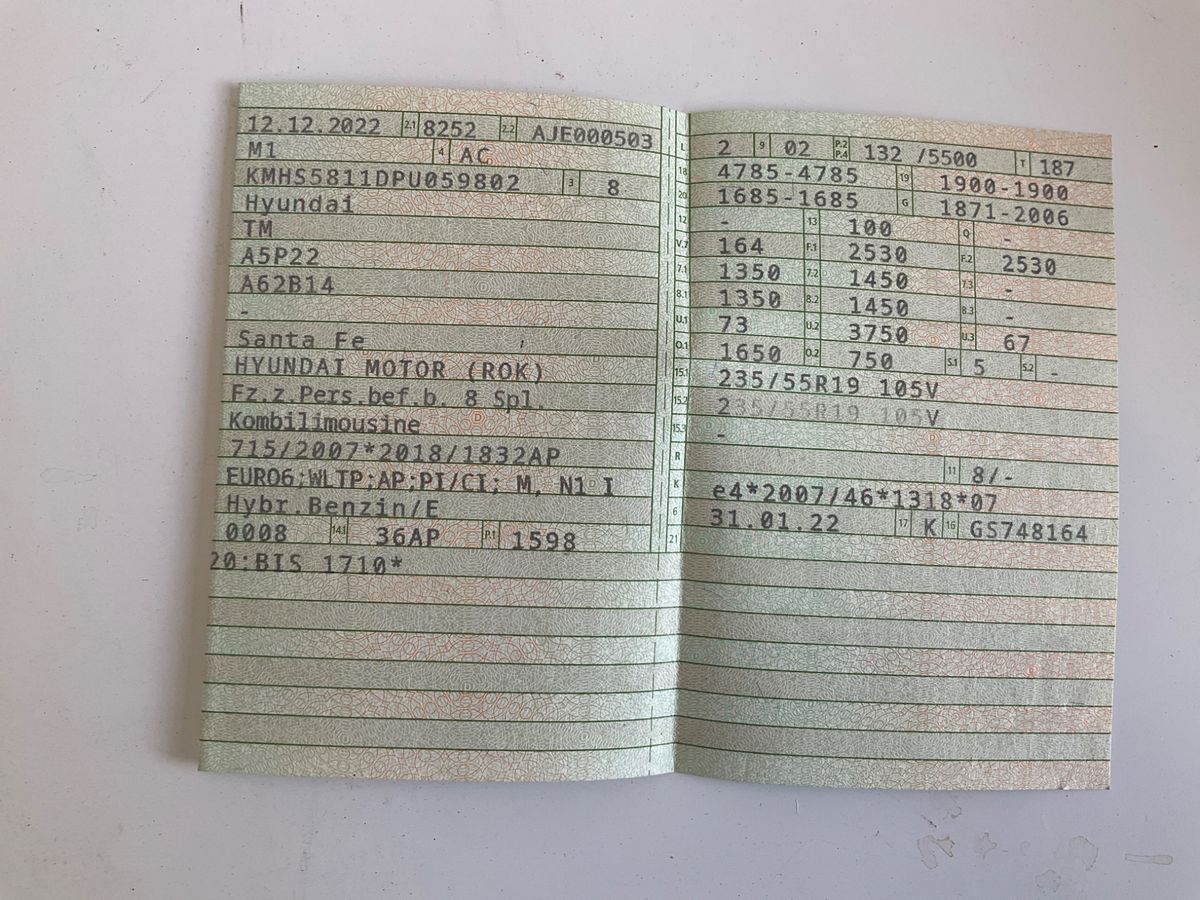 12.12.2022 2.1 8252 2.2 AJE000503
M1 4 AC
KMHS5811DPU059802 3 8
Hyundai
TM
A5P22
A62B14
-
Santa Fe
HYUNDAI MOTOR (ROK)
Fz.z.Pers.bef.b. 8 Spl.
Kombilimousine
715/2007*2018/1832AP
EURO6;WLTP;AP;PI/CI; M, N1 I
Hybr.Benzin/E
0008 14.1 36AP P.1 1598
20:BIS 1710*
L 2 9 02 P.2 P.4 132 /5500 T 187
18 4785-4785 19 1900-1900
20 1685-1685 G 1871-2006
12 - 13 100 Q -
V.7 164 F.1 2530 F.2 2530
7.1 1350 7.2 1450 7.3 -
8.1 1350 8.2 1450 8.3 -
U.1 73 U.2 3750 U.3 67
O.1 1650 O.2 750 S.1 5 S.2 -
15.1 235/55R19 105V
15.2 235/55R19 105V
15.3 -
R 11 8/-
K e4*2007/46*1318*07
6 31.01.22 17 K 16 GS748164
21